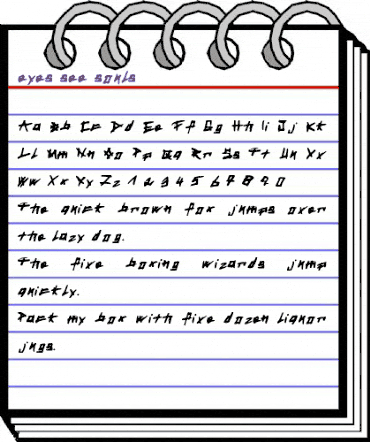 eyes see souls
Aa Bb Cc Dd Ee Ff Gg Hh Ii Jj Kk
Ll Mm Nn Oo Pp Qq Rr Ss Tt Uu Vv
Ww Xx Yy Zz 1 2 3 4 5 6 7 8 9 0
The quick brown fox jumps over
the lazy dog.
The five boxing wizards jump
quickly.
Pack my box with five dozen liquor
jugs.